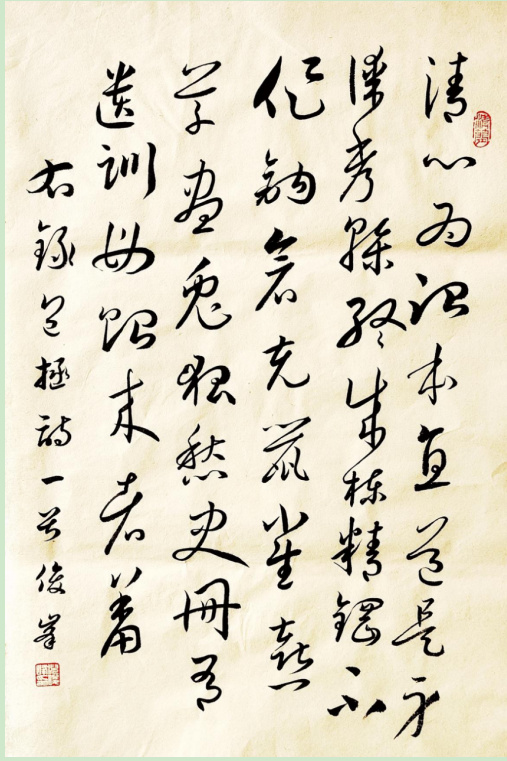 清心為治本直道是身
謀秀榦終成棟精鋼不
作鉤倉充鼠雀喜
草盡兔狐愁史冊有
遺訓毋貽來者羞
右錄包拯詩一首俊峯